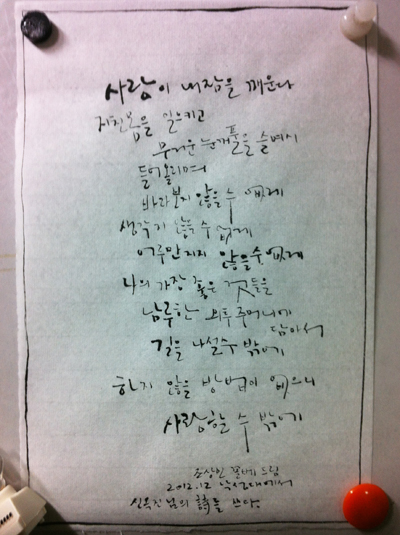 사랑이 내잠을 깨운다
지친몸을 일으키고
무거운 눈꺼풀을 슬며시
들어올리며
바라보지 않을 수 없게
생각지 않을 수 없게
어루만지지 않을수 없게
나의 가장 좋은 것들을
남루한 외투주머니에
담아서
길을 나설수 밖에
하지 않을 방법이 없으니
사랑할 수 밖에
조상인 드림
2012.12 낙성대에서
님의 詩를 쓰다.